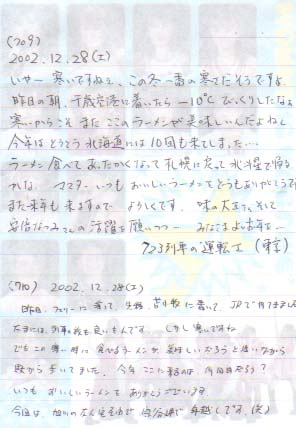 (709)
2002.12.28(土)
いやー寒いですねぇ、この冬一番の寒さだそうですよ
昨日の朝、千歳空港に着いたら -10℃ びっくりしたなぁ
寒いからこそ またここのラーメンが美味しいんだよねぇ
今年はとうとう北海道には10回も来てしまった…
ラーメン食べて あったかくなって 札幌に戻って 北斗星で帰る
かな マスターいつもおいしいラーメンをどうもありがとう
また来年も来ますので よろしくです。 味の大王さん、そして
安倍なつみさんの活躍を願いつつ… みなさまよいお年を…
723列車の運転士 (東京)
(710) 2002.12.28(土)
昨日、フェリーに乗って、苫小牧に着いて、JRで
たまには、列車の旅も良いもんです。 しかし寒いですね
でもこの寒い時に食べるラーメンが、美味しいだろうと思いながら
駅から歩いてました。 今年ここに来るのは 何回目だろう?
いつもおいしいラーメンを ありがとうございます
今回は、旭川の 年越しです。(笑)